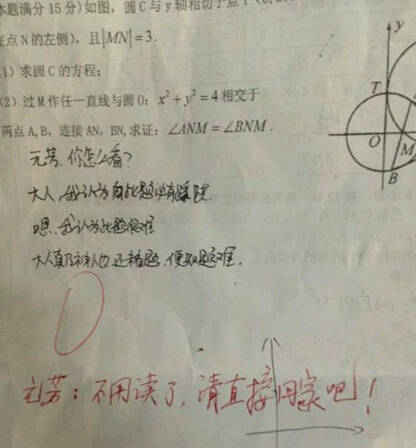 本题满分15分)如图,圆C与y轴相切于点T(0,2
在点N的左侧),且|MN|=3.
1)求圆C的方程;
2)过M作任一直线与圆O:x²+y²=4相交于
两点A,B,连接AN,BN,求证:∠ANM=∠BNM.
y
T
O
M
B
元芳,你怎么看?
大人,我认为此题
嗯,我认为此题很难
大人真乃神人也,还未审题,便知题难.
0
元芳:不用读了,请直接回家吧!